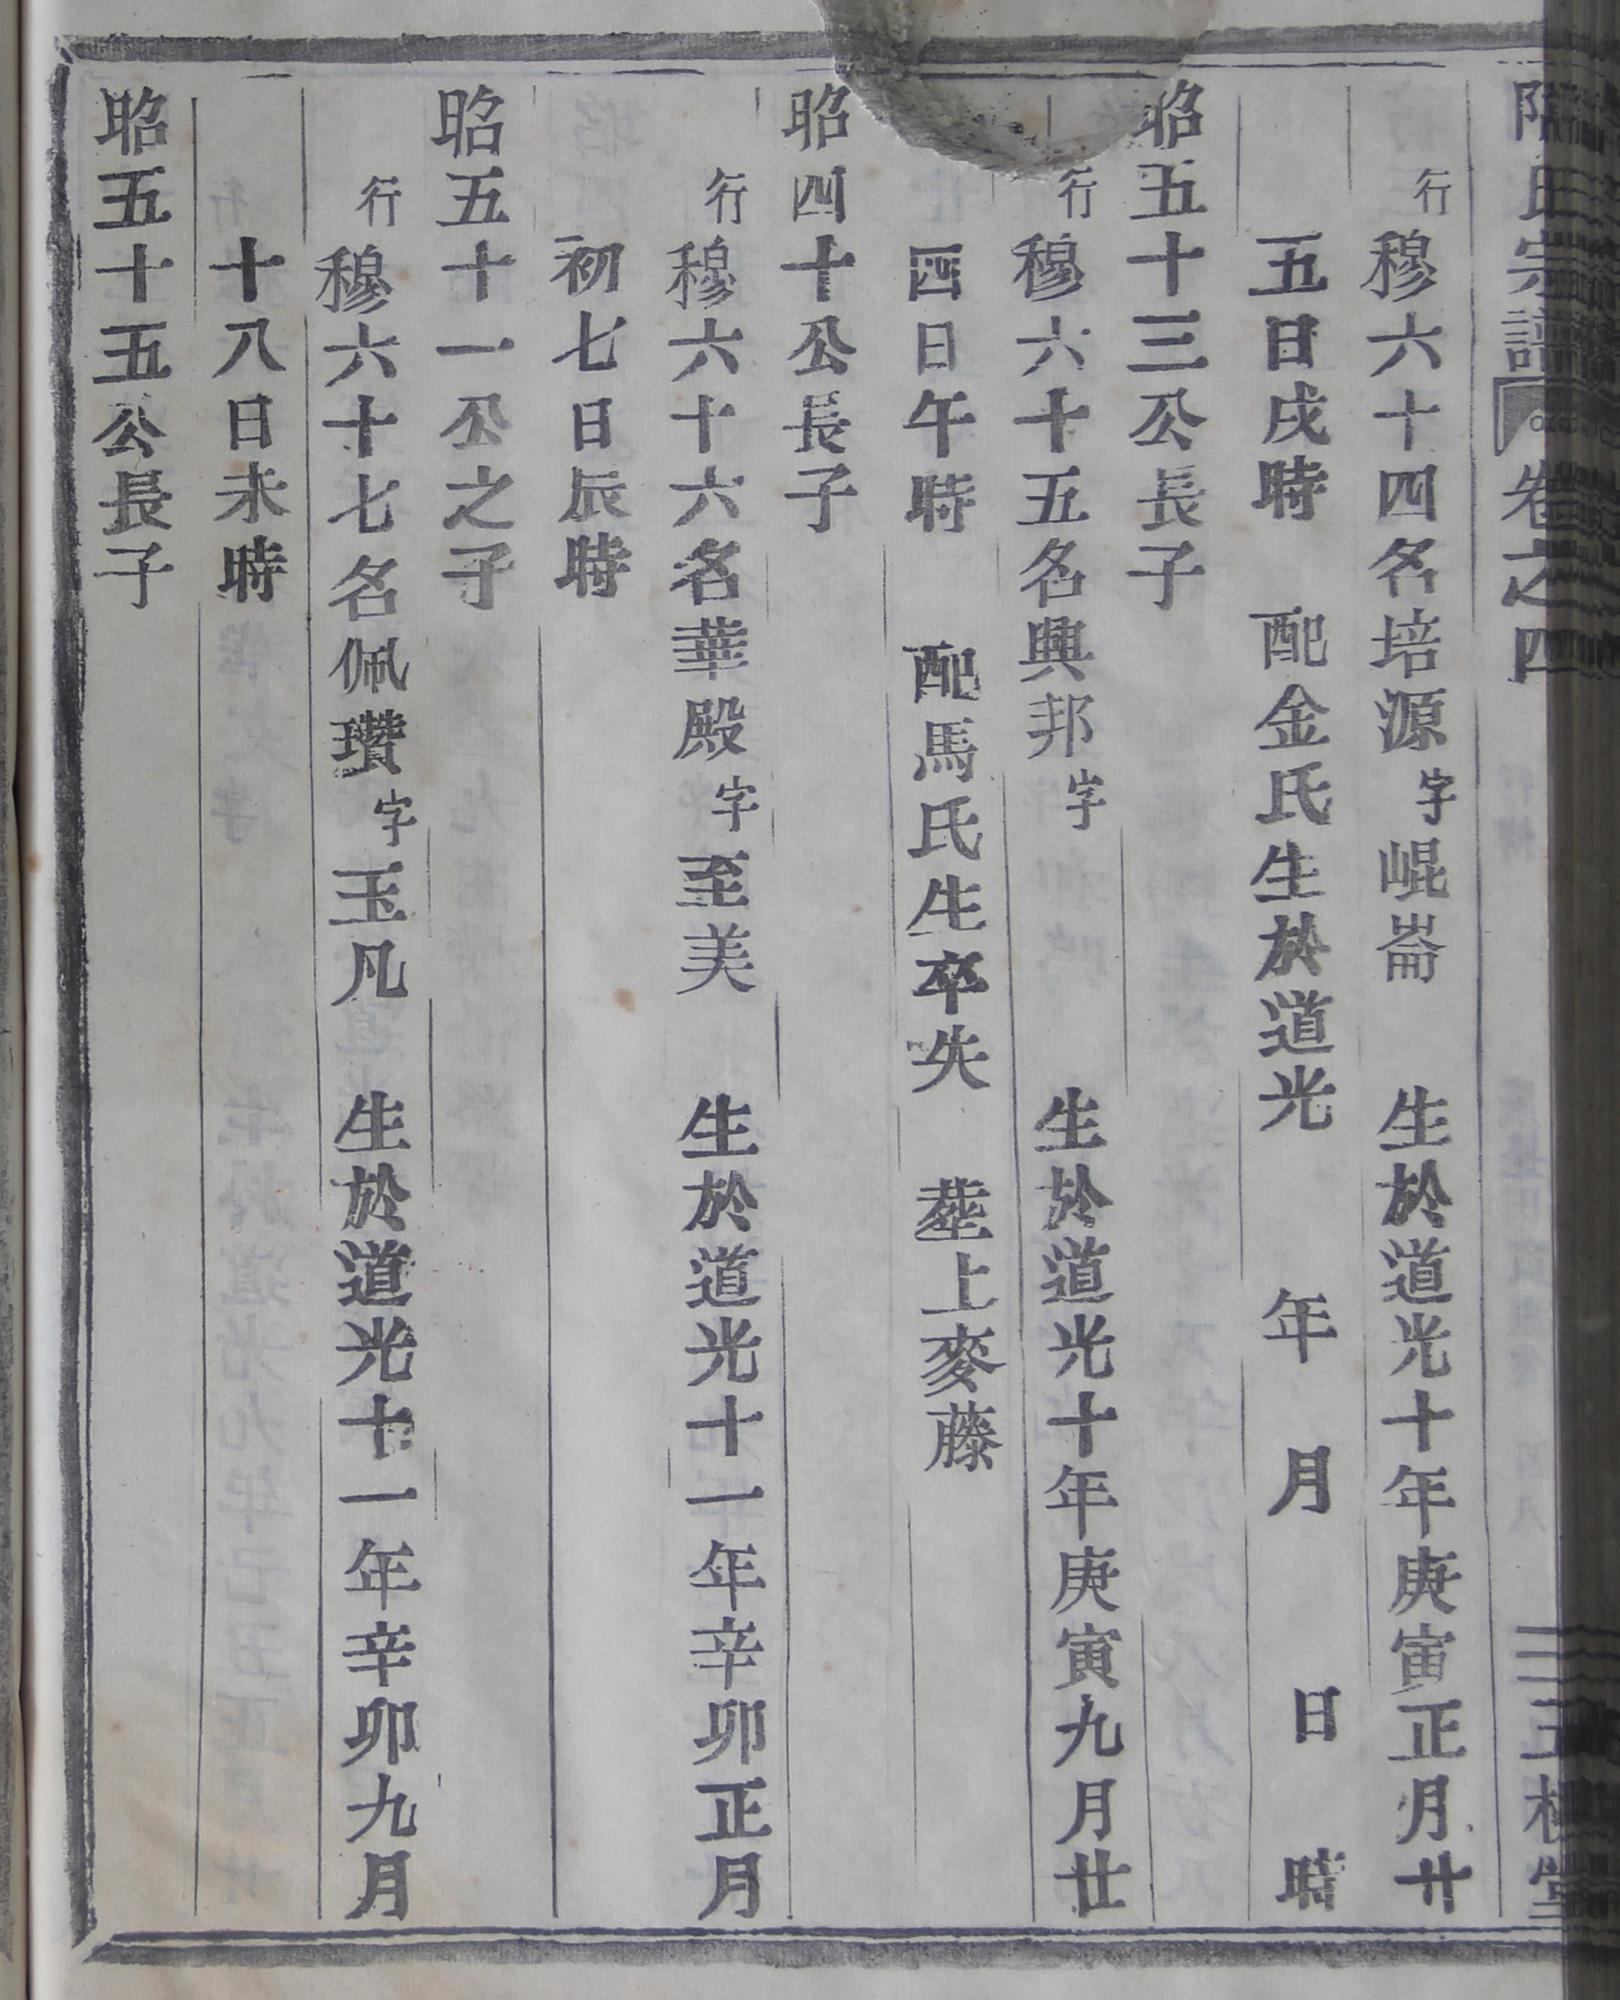 氏宗譜 卷之四
行穆六十四名培源字崐崙 生於道光十年庚寅正月廿
五日戌時 配金氏生於道光 年 月 日 時
昭五十三公長子
行穆六十五名興邦字 生於道光十年庚寅九月廿
四日午時 配馬氏生卒失 塟上麥藤
昭四十公長子
行穆六十六名華殿字至美 生於道光十一年辛卯正月
初七日辰時
昭五十一公之子
行穆六十七名佩瓚字玉凡 生於道光十一年辛卯九月
十八日未時
昭五十五公長子